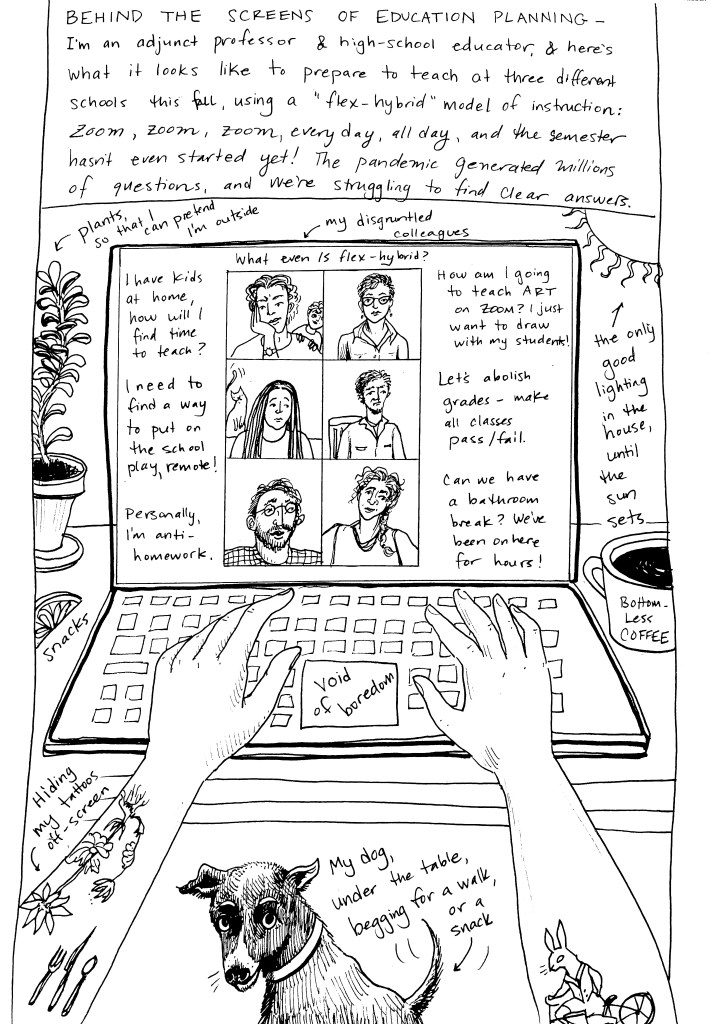 BEHIND THE SCREENS OF EDUCATION PLANNING -
I'm an adjunct professor & high-school educator, & here's
what it looks like to prepare to teach at three different
schools this fall, using a "flex-hybrid" model of instruction:
Zoom, zoom, zoom, every day, all day, and the semester
hasn't even started yet! The pandemic generated millions
of questions, and we're struggling to find clear answers.
plants,
so that I
can pretend
I'm outside
my disgruntled
colleagues
What even is flex-hybrid?
I have kids
at home,
how will I
find time
to teach?
I need to
find a way
to put on
the school
play, remote!
Personally,
I'm anti-
homework.
How am I going
to teach ART
on ZOOM? I just
want to draw
with my students!
Let's abolish
grades - make
all classes
pass/fail.
Can we have
a bathroom
break? We've
been on here
for hours!
the only
good
lighting
in the
house,
until
the
sun
sets
snacks
BOTTOM-
LESS
COFFEE
Void
of boredom
Hiding
my tattoos
off-screen
My dog,
under the table,
begging for a walk,
or a
snack